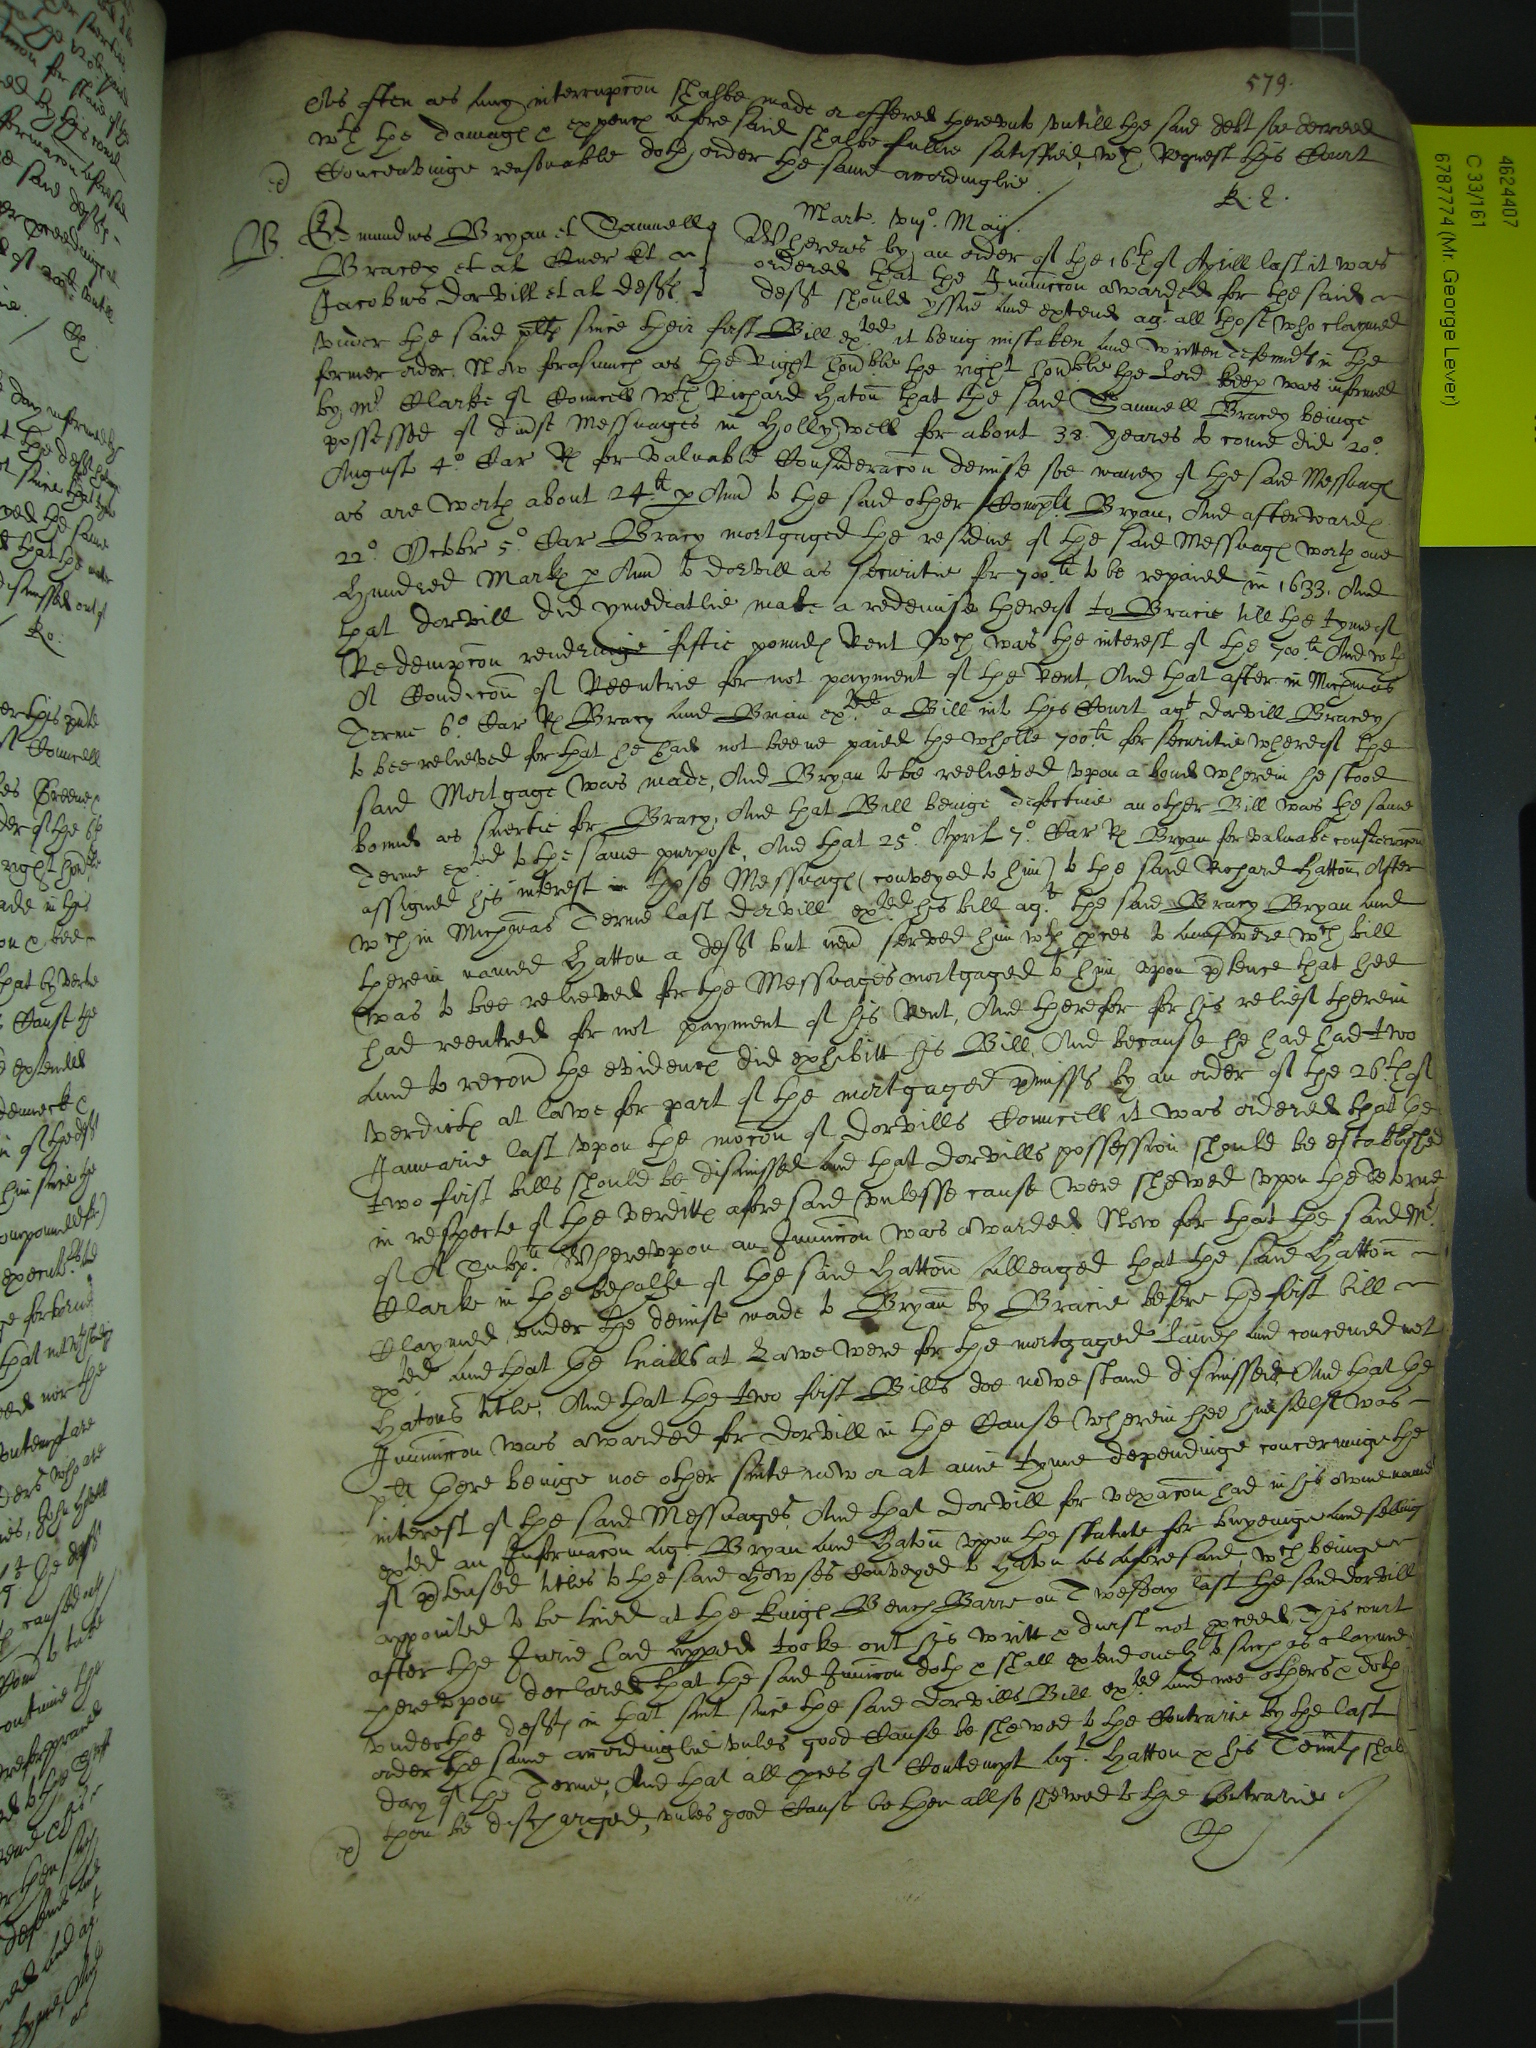 579.
As often as any interrupcon shalbe made or offered therevnto vntill the said debt soe decreed
wth the damages & expences aforesaid shalbe fullie satisfied, wch Request this Court
Conceavinge reasonable doth order the same accordinglie.
R. E.
Mart. viijo. May.
B.
Edmundus Bryan et Samuell
Bracey et al Quer et
Jacobus Dorvill et al deffts
Whereas by an order of the 16th of Aprill last it was
ordered that the Iniuncon awarded for the said
defft should yssue and extend agt all those who claymed
vnder the said plts since their first Bill exted it being mistaken and written Defendts in the
former order. Now forasmuch as the Right honble the right honble the Lord Keep was informed
by mr Clarke of Councell wth Richard Haton that the said Samuell Bracey beinge
possessed of divrse Messuages in Hollywell for about 38 yeares to come did 20o.
August 4o. Car R for valuable Consideracon demise soe many of the said Messuages
as are worth about 24li p Ann to the said other Complt Bryan, And afterwards
22o. Octobr 5o. Car Bracy mortgaged the residue of the said Messuages worth one
hundred Markes p Ann to Dorvill as securitie for 700li to be repaied in 1633. And
that Dorvill did ymediatlie make a redemise thereof to Bracie till the tyme of
Redempcon rendringe fiftie pounds Rent wch was the interest of the 700li And wth
A Condicon of Reentrie for not payment of the Rent, And that after in Michmas
Terme 6o Car R Bracy and Brian exted a Bill into this Court agt Dorvill Bracey
to bee relieved for that he had not beene paied the wholle 700li for securitie whereof the
said Mortgage was made, And Bryan to be reelieved vpon a bond wherein he stood
bound as suertie for Bracy, And that Bill beinge defective an other Bill was the same
Terme exted to the same purpose, And that 25o. April 7o. Car R Bryan for valuable consideracon
assigned his interest in those Messuages (conveyed to him) to the said Richard Hatton, After
wch in Michmas Terme last Dorvill exted his bill agt the said Bracy Bryan and
therein named Hatton a defft but nevr served him wth pces to answere wch bill
was to bee relieved for the Messuages mortgaged to him vpon ptence that hee
had reentred for not payment of his Rent, And therefor for his relief therein
and to recovr the evidences did exhibitt his Bill, And because he had had two
verdicts at lawe for part of the mortgaged premisses by an order of the 26th of
Januarie last vpon the mocon of Dorvills Councell it was ordered that the
two first bills should be dismissed and that Dorvills possession should be established
in respecte of the verdicts aforesaid vnlesse cause were shewed vpon the retorne
of A Subpa. Wherevpon an Iniuncon was awarded. Now for that the said Mr
Clarke in the behalfe of the said Hatton alleaged that the said Hatton
Claymed vnder the demise made to Bryan by Bracie before the first bill
exted and that the trialls at Lawe were for the mortgaged Lands and concerned not
Hatons title, And that the two first Bills doe nowe stand dismissed, And that the
Iniuncon was awarded for Dorvill in the Cause wherein hee himselfe was
plt there beinge noe other suite now or at anie tyme dependinge concerninge the
interest of the said Messuages, And that Dorvill for vexacon had in his owne name
exted an Informacon agt Bryan and Haton vpon the statute for buyenige and selling
of ptensed titles to the said howses conveyed to Haton as aforesaid wch beinge
appointed to be tried at the Kings Bench Barre on Tuesday last the said Dorvill
after the Jurie had apped tooke out his writt & durst not pceed, This court
therevpon declared that the said Iniuncon doth & shall extend onely to such as clayme
vnder the deffts in that suit since the said Dorvills Bill exted and noe others & doth
order the same accordinglie vnles good Cause be shewed to the Contrarie by the last
day of the Terme, And that all pces of Contempt agt. Hatton & his Tennts shall
then be discharged, vnles good Cause be then allso shewed to the Contrarie
4624407
C 33/161
6787774 (Mr. George Lever)